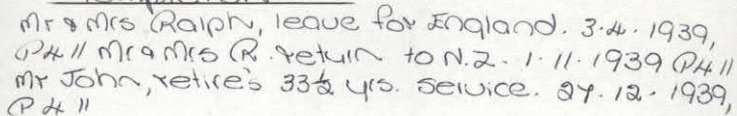 Mr & Mrs Ralph, leave for England. 3.4.1939,
P4 11 Mr & Mrs R. return to N.Z. 1.11.1939 P4 11
Mr John, retire's 33½ yrs. service. 27.12.1939,
P4 11